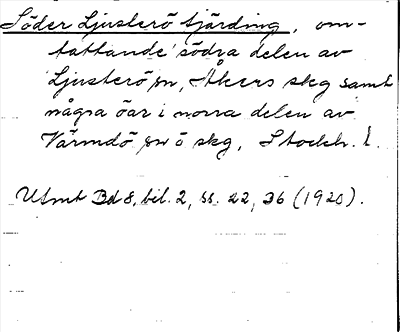 Söder Ljusterö fjärding, om-
fattande södra delen av
Ljusterö sn, Åkers skg samt
några öar i norra delen av
Värmdö sn o skg, Stockh. l.
Utmt Bd 8, bil. 2, ss. 22, 36 (1920).